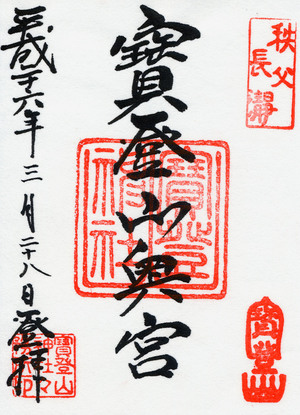 秩父
長瀞
寶登山奥宮
寶登山
神社
平成二十六年三月二十八日登拝
寶登山
神社々
務所印
寶登山